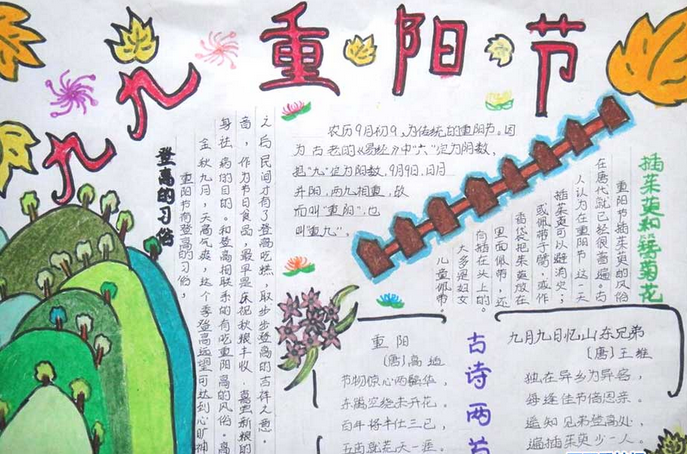 九九重阳节
农历9月初9,为传统的重阳节。因
为古老的《易经》中“六”定为阴数,
把“九”定为阳数,9月9日,日月
并阳,两九相重,故
而叫“重阳”,也
叫“重九”。
登高的习俗
重阳节有登高的习俗,
金秋九月,天高气爽,这个季登高远望可达到心旷神
身祛病的目的。和登高相联系的有吃重阳高的风俗。高
面,作为节日食品,最早是庆祝秋粮丰收、喜尝新粮的
之后民间才有了登高吃糕,取步步登高的吉祥之意。
插茱萸和簪菊花
重阳节插茱萸的风俗
在唐代就已经很普遍。古
人认为在重阳节这一天
插茱萸可以避消灾;
或佩带于臂,或作
香袋把茱萸放在
里面佩带,还
有插在头上的。
大多是妇女
儿童佩带。
古诗两
重阳
[唐]高适
节物惊心两鬓华,
东篱空绕未开花。
百年将半仕三已,
五亩就荒天一涯。
九月九日忆山东兄弟
[唐]王维
独在异乡为异客,
每逢佳节倍思亲。
遥知兄弟登高处,
遍插茱萸少一人。